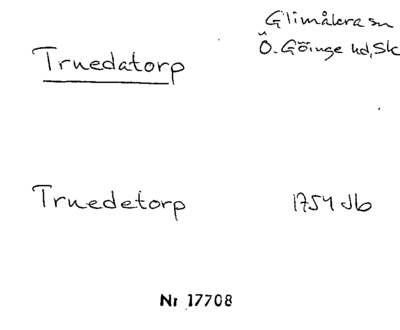 Glimåkra sn
Truedatorp
Ö. Göinge hd, Sk
Truedetorp
1754 Jb
Nr 17708